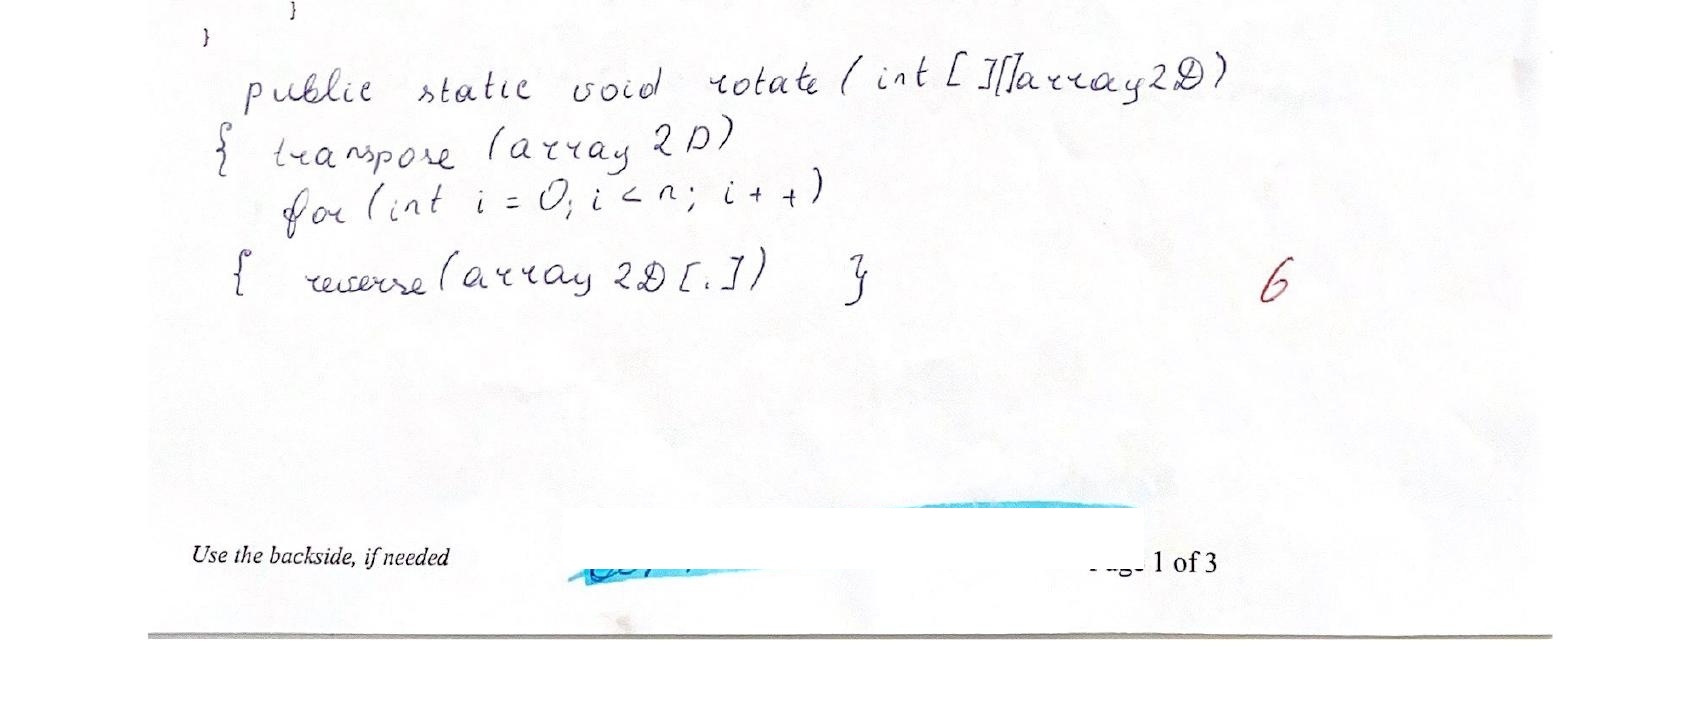 }
}
public static void rotate (int [][]array2D)
{ transpose (array 2D)
for (int i = 0; i < n; i + +)
{ reverse (array 2D [.]) }
6
Use the backside, if needed
1 of 3